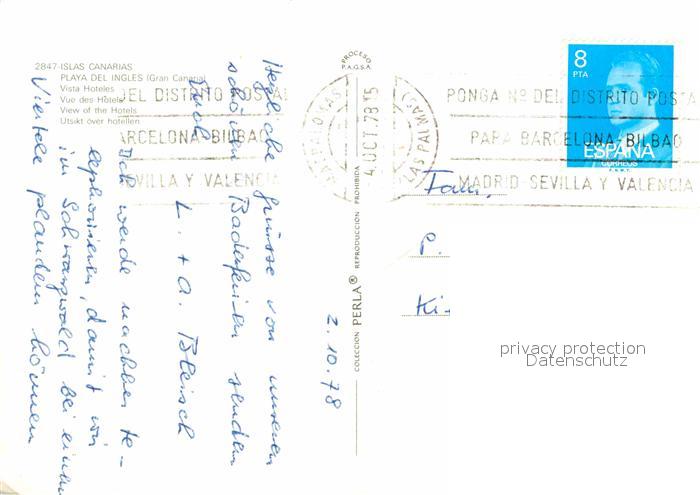 2847-ISLAS CANARIAS
PLAYA DEL INGLES (Gran Canaria)
Vista Hoteles
Vue des Hotels
View of the Hotels
Utsikt över hotellen
Herzliche Grüsse von unseren
schönen Badeferien senden
Euch
L. + A. Bleisch
Ich werde nachher te-
lephonieren, damit wir
im Schwarzwald bei einem
Viertele plaudern können
2.10.78
PROCESO
P.A.G.S.A.
COLECCION PERLA® REPRODUCCION PROHIBIDA
DEL DISTRITO POSTAL
BARCELONA-BILBAO
SEVILLA Y VALENCIA
4.OCT.78
(LAS PALMAS)
PONGA Nº DEL DISTRITO POSTA
PARA BARCELONA-BILBAO
MADRID-SEVILLA Y VALENCIA
8
PTA
ESPAÑA
CORREOS
F.N.M.T.
Fam.
P.
Ki-
privacy protection
Datenschutz